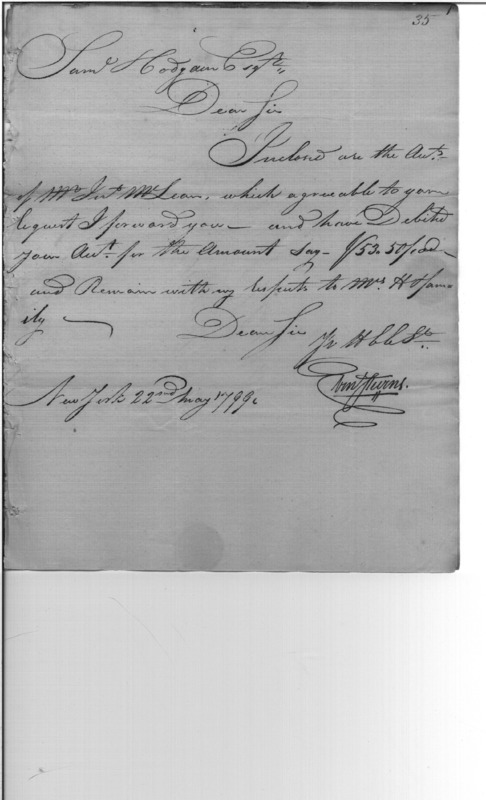 35
Saml Hodgdon Esqr
Dear Sir
Inclosed are the Acts
of Mr Jno McLean, which agreeable to your
request I forward you — and have Debited
your Actt for the Amount say — $53.50/00
and Remain with my respects to Mrs H & fam
ily —
Dear Sir
Yr Hble St
Eben Stevens.
New York 22nd May 1799